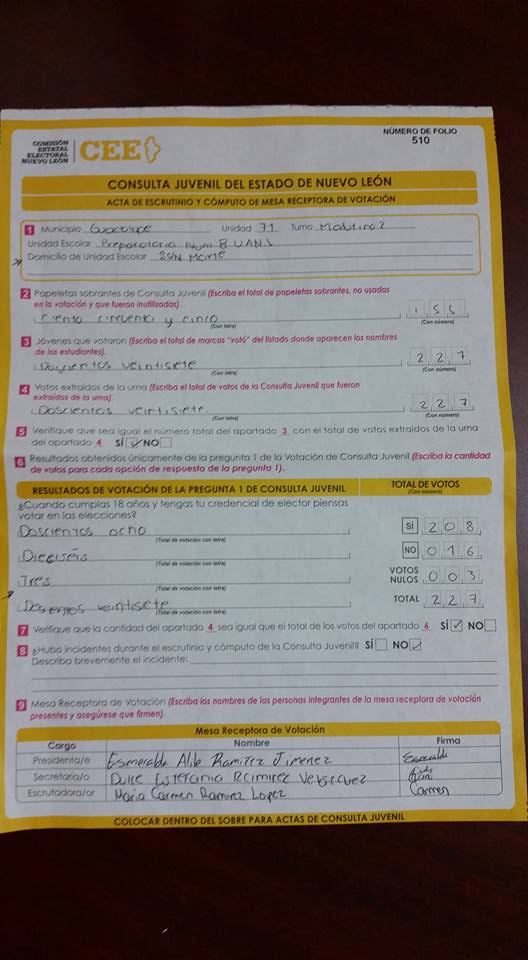 COMISIÓN
ESTATAL
ELECTORAL
NUEVO LEÓN
CEE
NÚMERO DE FOLIO
510
CONSULTA JUVENIL DEL ESTADO DE NUEVO LEÓN
ACTA DE ESCRUTINIO Y CÓMPUTO DE MESA RECEPTORA DE VOTACIÓN
1 Municipio Guadalupe Unidad 71 Turno
Unidad Escolar Preparatoria Num 8 UANL
Domicilio de Unidad Escolar
2 Papeletas sobrantes de Consulta Juvenil (Escriba el total de papeletas sobrantes, no usadas
en la votación y que fueron inutilizadas).
Ciento cincuenta y cinco 155
(Con letra) (Con número)
3 Jóvenes que votaron (Escriba el total de marcas "votó" del listado donde aparecen los nombres
de los estudiantes).
Doscientos veintisiete 227
(Con letra) (Con número)
4 Votos extraídos de la urna (Escriba el total de votos de la Consulta Juvenil que fueron
extraídos de la urna).
Doscientos veintisiete 227
(Con letra) (Con número)
5 Verifique que sea igual el número total del apartado 3 con el total de votos extraídos de la urna
del apartado 4 SÍ NO
6 Resultados obtenidos únicamente de la pregunta 1 de la Votación de Consulta Juvenil (Escriba la cantidad
de votos para cada opción de respuesta de la pregunta 1).
RESULTADOS DE VOTACIÓN DE LA PREGUNTA 1 DE CONSULTA JUVENIL TOTAL DE VOTOS
(Con número)
¿Cuando cumplas 18 años y tengas tu credencial de elector piensas
votar en las elecciones?
Doscientos ocho SÍ 208
(Total de votación con letra)
Dieciséis NO 016
(Total de votación con letra)
Tres VOTOS NULOS 003
(Total de votación con letra)
Doscientos veintisiete TOTAL 227
(Total de votación con letra)
7 Verifique que la cantidad del apartado 4 sea igual que el total de los votos del apartado 6 SÍ NO
8 ¿Hubo incidentes durante el escrutinio y cómputo de la Consulta Juvenil? SÍ NO
Describa brevemente el incidente:
9 Mesa Receptora de Votación (Escriba los nombres de las personas integrantes de la mesa receptora de votación
presentes y asegúrese que firmen).
Mesa Receptora de Votación
Cargo Nombre Firma
Presidenta/e Esmeralda Ramirez Jimenez Esmeralda
Secretaria/o Dulce Estefania Ramirez Velazquez
Escrutadora/or Maria Carmen Ramirez Lopez Carmen
COLOCAR DENTRO DEL SOBRE PARA ACTAS DE CONSULTA JUVENIL